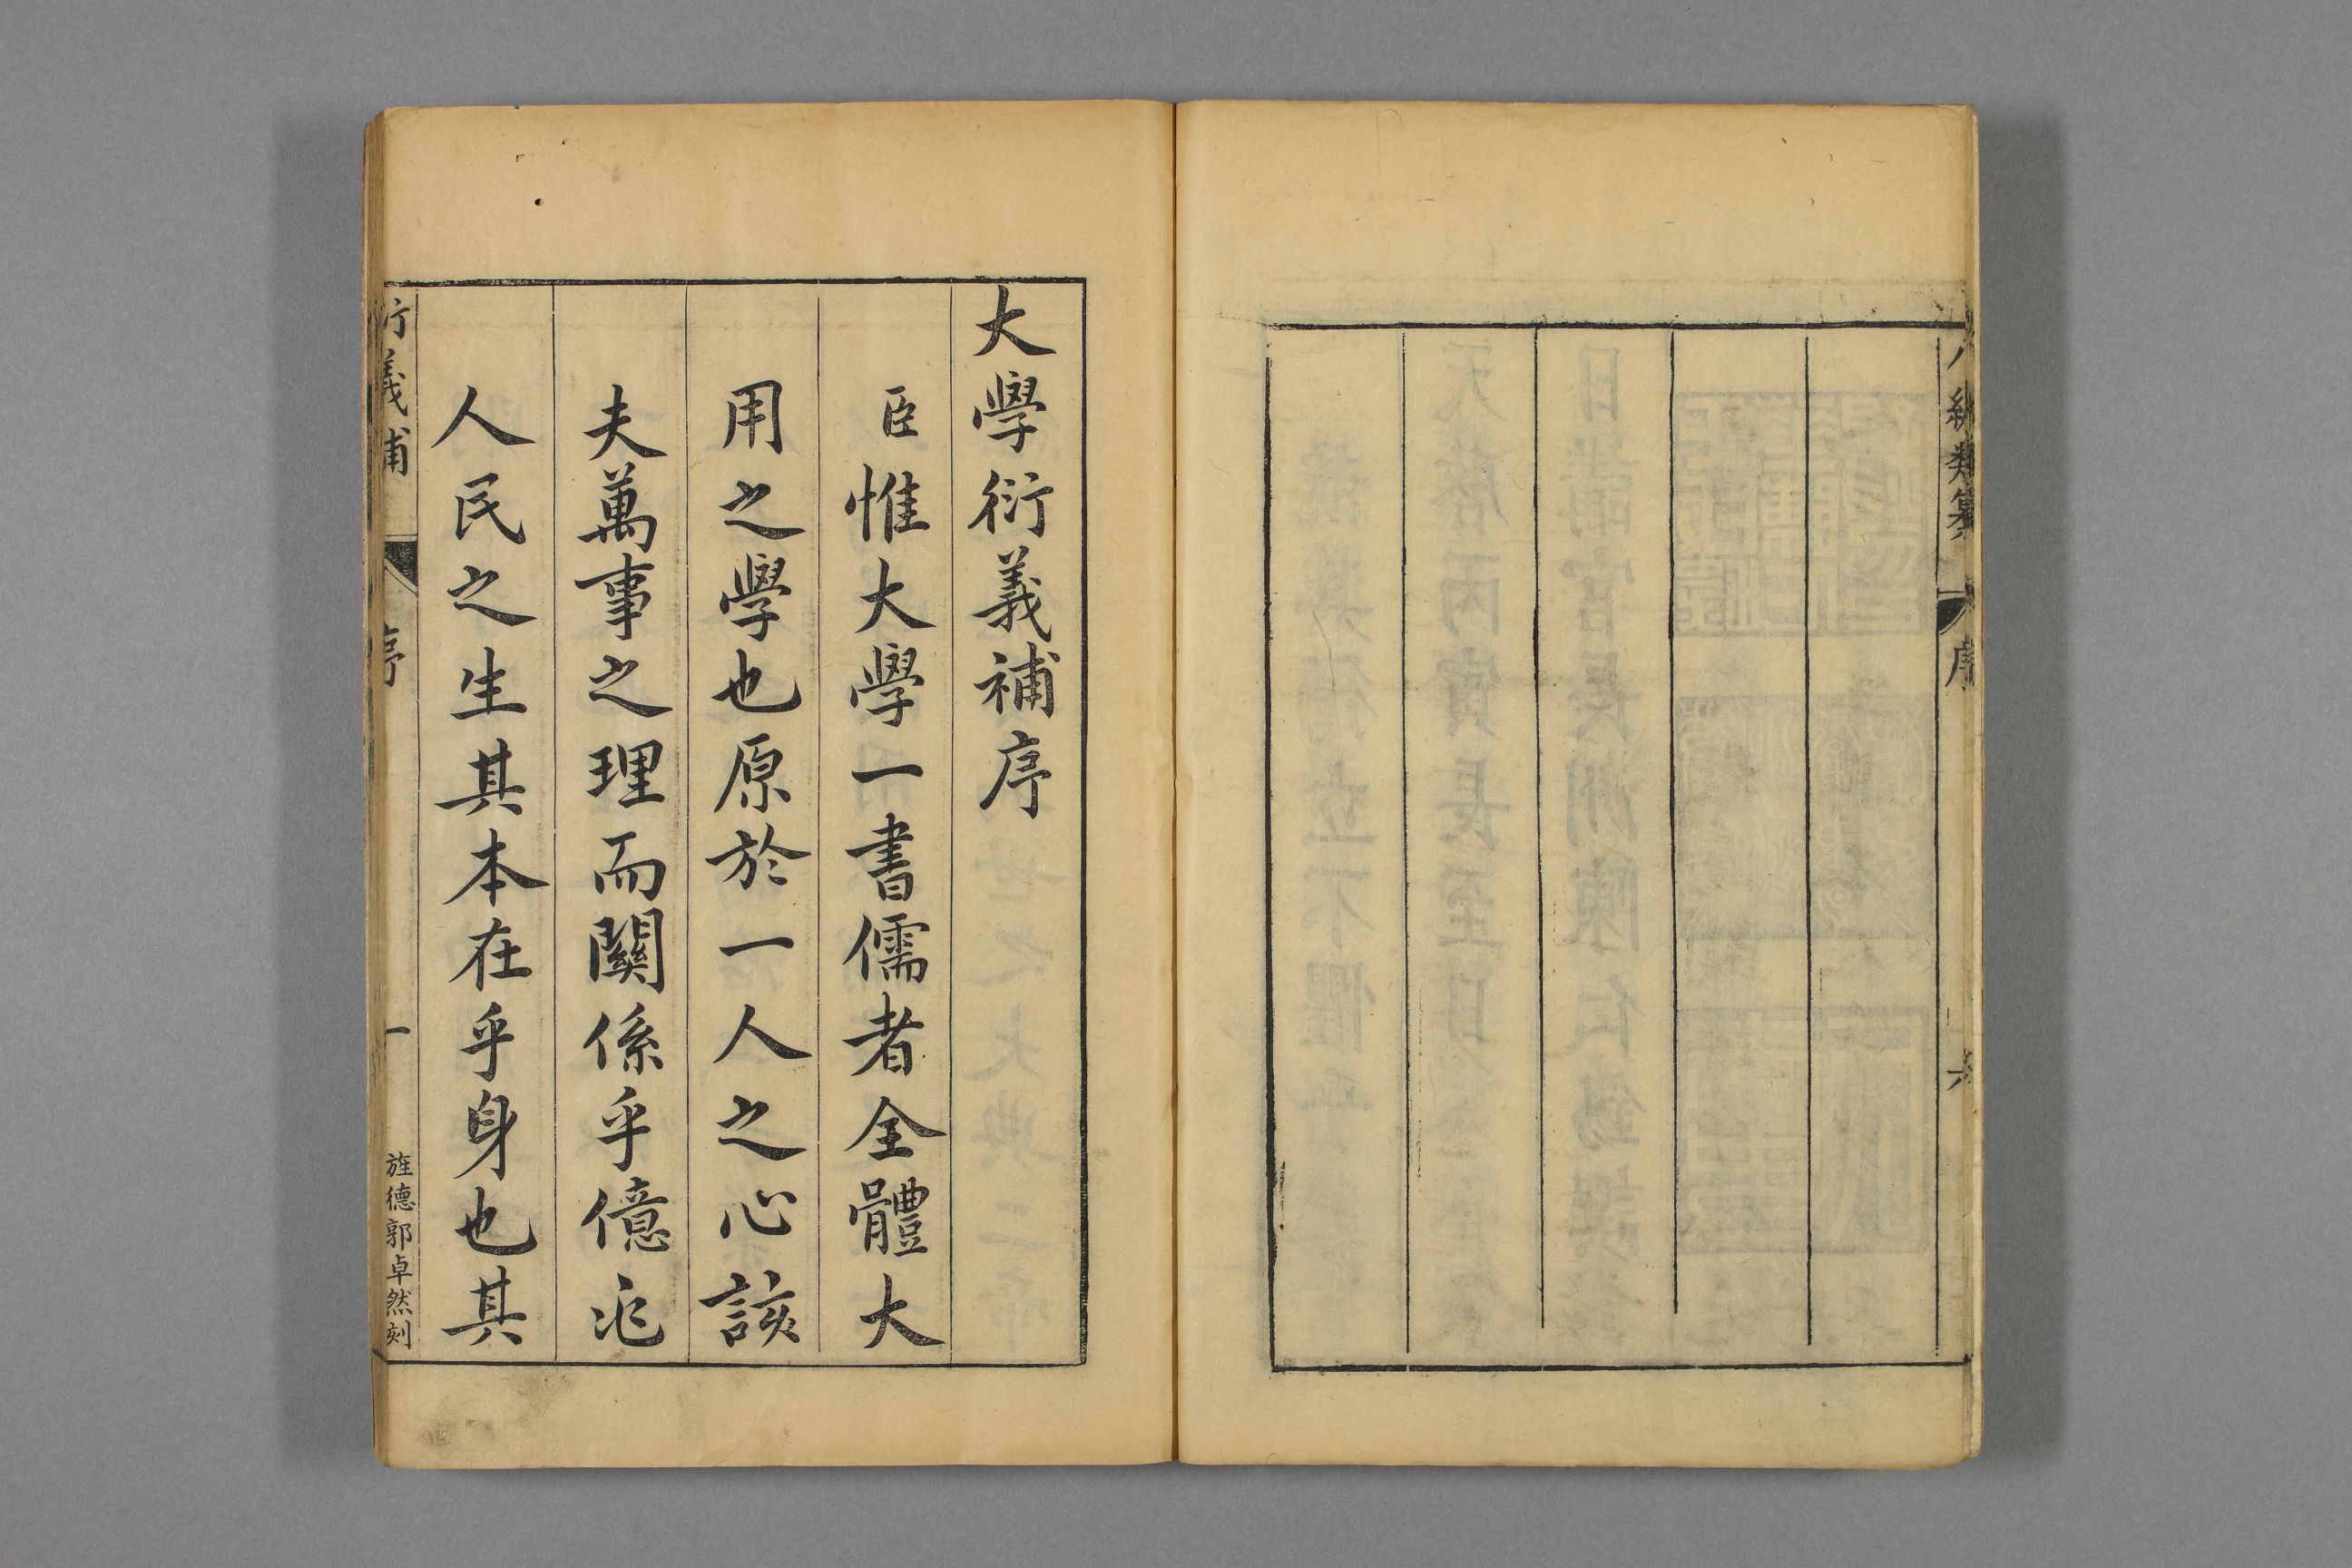 八編類纂
序
六
大學衍義補序
臣惟大學一書儒者全體大
用之學也原於一人之心該
夫萬事之理而關係乎億兆
人民之生其本在乎身也其
衍義補
序
一
旌德郭卓然刻